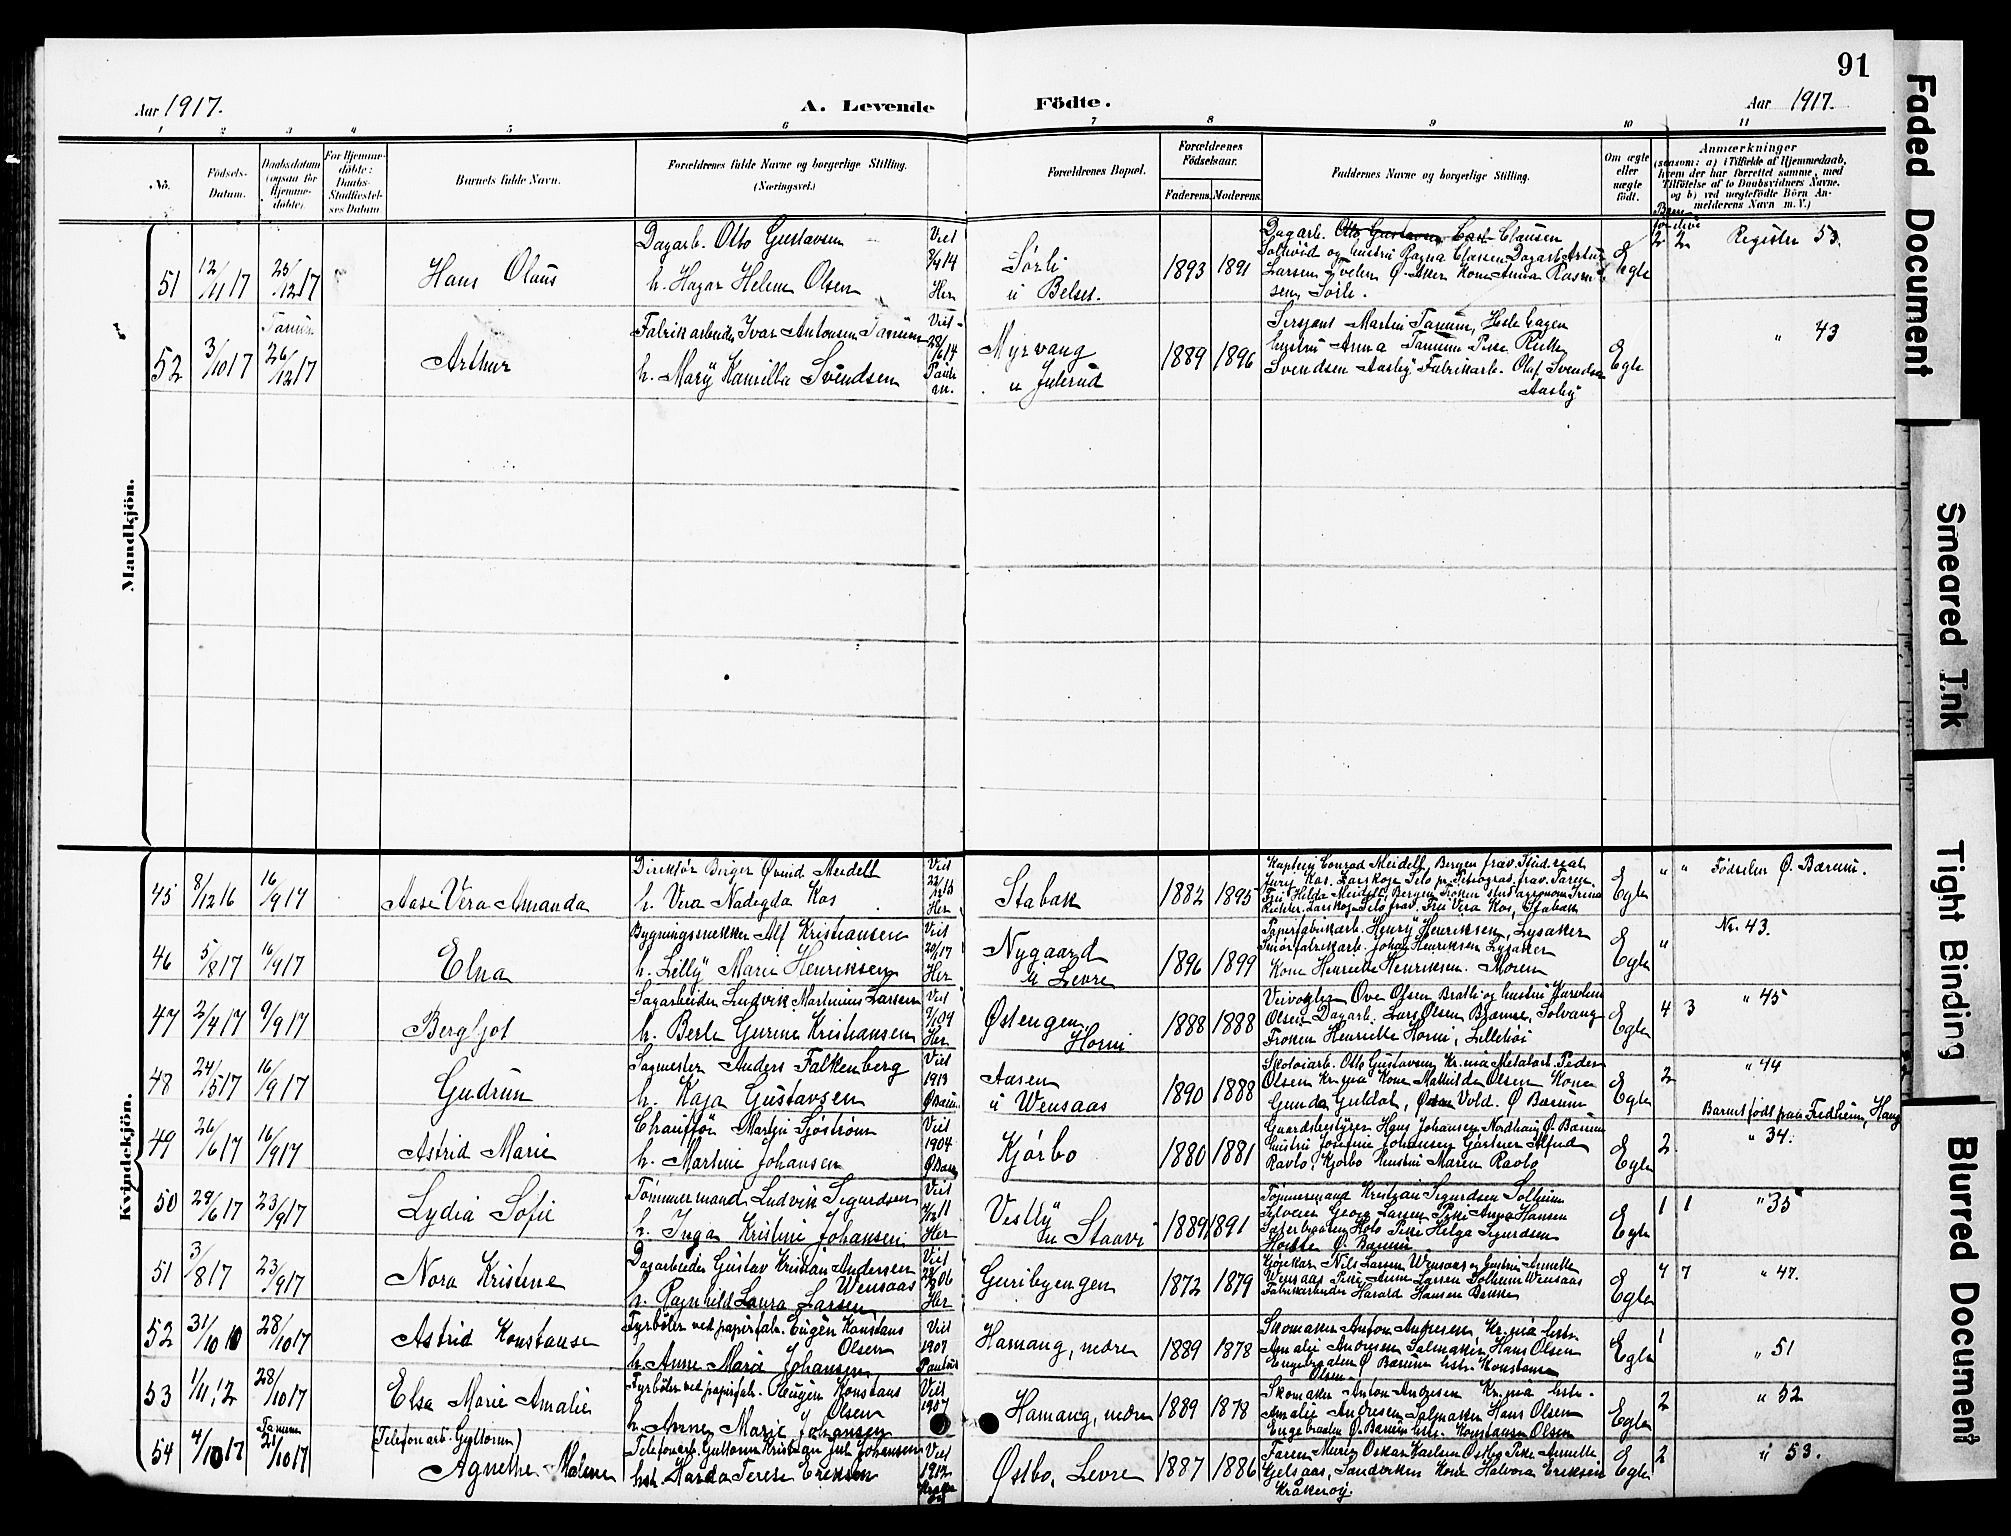 91
Aar 1917. A. Levende Födte. Aar 1917.
1 2 3 4 5 6 7 8 9 10 11
No. Födsels-Datum. Daabsdatum (ogsaa for Hjemme-döbte). For Hjemme-döbte: Daabs-Stadfæstel-ses Datum Barnets fulde Navn. Forældrenes fulde Navne og borgerlige Stilling. (Næringsvei.) Forældrenes Bopæl. Forældrenes Födselsaar. Faderens. Moderens. Faddernes Navne og borgerlige Stilling. Om ægte eller uægte födt. Anmærkninger (saasom: a) i Tilfælde af Hjemmedaab, hvem der har forrettet samme, med Tilföielse af to Daabsvidners Navne, og b) ved uægtefödte Börn An-melderens Navn m. V.)
Mandkjön.
51 12/11 17 25/12 17 Hans Olaus
Dagarb. Otto Gustavsen
h. Hagar Helene Olsen
Viet 14 Her
Sørli
u Belset.
1893 1891
Dagarb. Otto Gustavsen Carl Clausen
Solhöid og hustru Ragna Clausen Dagarb Artur
Larsen Tveter Ø. Aker Kone Anna Rasmus
sen, Sørli.
Egte 2 2 Register 53.
52 3/10 17 Tanum 26/12 17 Arthur
Fabrikarbeider Ivar Antonsen Tanum
h. Mary Kamilla Svendsen
Viet 14
Myrvang
u Julerud
1889 1896
Sersjant Martin Tanum, Hslehagen
hustru Anna Tanum Pike Ruth
Svendsen Aasby Fabrikarb. Olaf Svendsen
Aasby
Egte " 43
Kvindekjön.
45 8/12 16 16/9 17 Aase Vera Amanda
Direktør Birger Øvind Meidell
h. Vera Nadegda Kos
Viet Her
Stabæk
1882 1895
Kaptein Conrad Meidell, Bergen frav. Stud. real
Jurij Kos. Zarskoje Selo pr. Petrograd. frav.
Fru Helda Meidell Bergen Frøken
Richter, Zarskoje Selo frav. Fru Vera Kos, Stabæk
Egte " " Födselen Ø. Bærum.
46 5/8 17 16/9 17 Elna
Bygningssnekker Alf Kristiansen
h. Lilly Marie Henriksen
Viet 20/ 17 Her
Nygaard
u Levre
1896 1899
Papirfabrikarb. Henry Henriksen, Lysaker
Smörfabrikarb. Johan Henriksen Lysaker
Kone Henriette Henriksen. Moren
Egte " Nr. 43.
47 2/4 17 9/9 17 Bergljot
Sagarbeider Ludvik Martinius Larsen
h. Berte Gurine Kristiansen
Viet 09 Her
Østengen,
Horni
1888 1888
Veivogter Ove Olsen Bratli og hustru Karoline
Olsen Dagarb. Lars Olsen Bjermse, Solvang
Frøken Henriette Horni, Lillehöi
Egte 4 3 " 45
48 24/5 17 16/9 17 Gudrun
Sagmester Anders Falkenberg
h. Kaja Gustavsen
Viet 1913 Ø Bærum
Aasen
u Wensaas
1890 1888
Skotöiarb. Otto Gustavsen Kr.nia Metalarb. Peder
Olsen Kr.nia Kone Mathilda Olsen Kone
Gunda Guldal, Vold. Ø Bærum
Egte 2 " 44
49 26/6 17 16/9 17 Astrid Marie
Chauffør Martin Sjöström
h. Martine Johansen
Viet 1904 Ø Bærum
Kjørbo
1880 1881
Gaardsbestyrer Hans Johansen Nordhaug Ø. Bærum
hustru Josefine Johansen Gartner Alfred
Ravlo, Kjørbo Hustru Maren Ravlo
Egte 2 Barnet født paa Fredheim, Haug
" 34.
50 29/6 17 23/9 17 Lydia Sofie
Tømmermand Ludvik Sigurdsen
h. Inga Kristine Johansen
Viet 11 Her
Vestby
u Staavi
1889 1891
Tømmermand Kristian Sigurdsen Solheim
Georg Larsen Pike Anna Hansen
Pike Helga Sigurdsen
Ø. Bærum
Egte 1 1 " 35
51 3/8 17 23/9 17 Nora Kristine
Dagarbeider Gustav Kristian Andersen
Wensaas
h. Ragnhild Laura Larsen
Viet 06 Her
Guribyengen
1872 1879
Nils Larsen Wensaas og hustru Annette
Wensaas Pike Anna Larsen Solheim Wensaas
Fabrikarbeider Harald Hansen
Egte 4 7 " 47.
52 31/10 10 28/10 17 Astrid Konstanse
Fyrböter ved papirfab. Eugen Konstans
Olsen
h. Anne Marie Johansen
Viet 1907
Hamang, nedre
1889 1878
Skomaker Anton Andresen, Kr.nia hstr.
Amalie Andresen Salmaker Hans Olsen
Engebraaten Ø. Bærum hstr. Konstanse
Olsen.
Egte 1 " 51
53 1/11 12 28/10 17 Elsa Marie Amalie
Fyrböter ved papirfab. Eugen Konstans
Olsen
h. Anne Marie Johansen
Viet 1907
Hamang, nedre
1889 1878
Skomaker Anton Andresen Kr.nia hstr.
Amalie Andresen Salmaker Hans Olsen
Engebraaten Ø. Bærum hstr. Konstanse Olsen
Egte 2 " 52
54 4/10 17 Tanum 21/10 17 (Telefonarb. Guttorm)
Agnethe Malene
Telefonarb. Guttorm Kristian Jul. Johansen
hst. Harda Terese Eriksen
Viet 1912 Kraker öy
Østbo, Levre
1887 1886
Faren Murer Oskar Karlsen Østbo Pike Annette
Gjelsaas, Sandviken Kone Halvora Eriksen
Kråkeröy.
Egte 2 " 53.
Faded Document
Smeared Ink
Tight Binding
Blurred Document